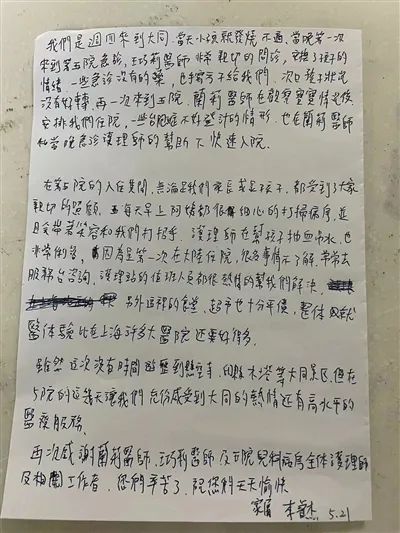 我們是週四來到大同,當天小孩就發燒不適,當晚第一次
來到第五院急診,王巧莉醫師非常親切的問診,安撫了孩子的
情緒,一些急診沒有的藥,也手寫了給我們,次日孩子狀況
沒有好轉,再一次來到五院,蘭莉醫師在觀察寶寶情之後
安排我們住院,一些台胞證不好登記的情形,也在蘭莉醫師
和當晚急診護理師的幫助下快速入院.
在第5院的入住期間,無論是我們家長或是孩子,都受到大家
親切的照顧,每天早上阿姨都很細心的打掃病房,並
且常帶著笑容和我們打招乎,護理師在幫孩子抽血吊水,也
非常俐落,因為是第一次在大陸住院,很多事情不了解,常常去
服務台咨詢,護理站的值班人員都很熱情的幫我們解決,
另外這裡的食堂,超市也十分平價,整体
醫体驗比在上海許多大醫院還要好得多.
雖然這次沒有時間遊覽到懸空寺,應縣木塔等大同景区,但在
5院的这幾天讓我們充份感受到大同的熱情还有高水平的
醫療服務.
再次感謝蘭莉醫師,王巧莉醫師及五院兒科病房全体護理師
及相關工作者,您們辛苦了,祝您們天天愉快
家屬 李 杰 5.21